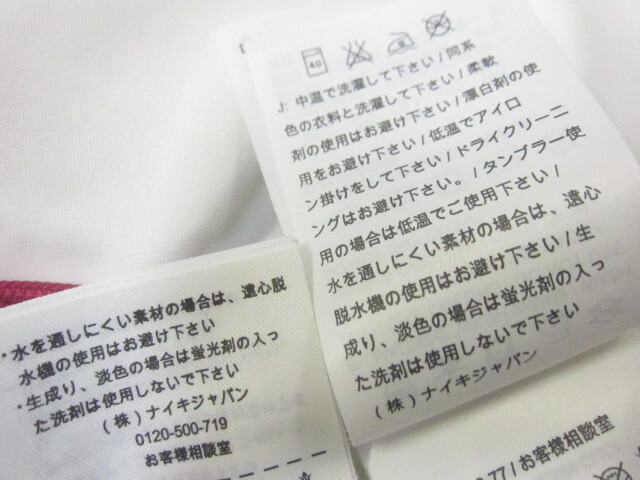 40
J: 中温で洗濯して下さい/同系
色の衣料と洗濯して下さい/柔軟
剤の使用はお避け下さい/漂白剤の使
用をお避け下さい/低温でアイロ
ン掛けをして下さい/ドライクリーニ
ングはお避け下さい。/タンブラー使
用の場合は低温でご使用下さい/
水を通しにくい素材の場合は、遠心
脱水機の使用はお避け下さい/生
成り、淡色の場合は蛍光剤の入っ
た洗剤は使用しないで下さい
(株)ナイキジャパン
・水を通しにくい素材の場合は、遠心脱
水機の使用はお避け下さい
・生成り、淡色の場合は蛍光剤の入っ
た洗剤は使用しないで下さい
(株)ナイキジャパン
0120-500-719
お客様相談室
77/お客様相談室